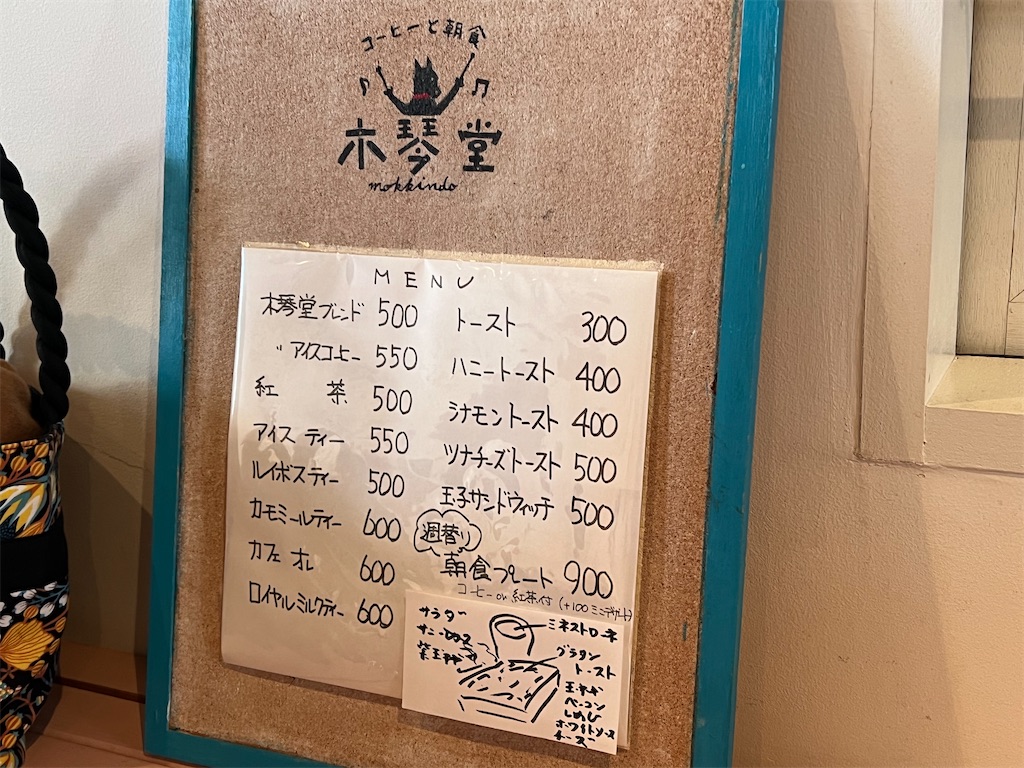 コーヒーと朝食
木琴堂
mokkindo
MENU
木琴堂ブレンド 500
〃 アイスコーヒー 550
紅茶 500
アイスティー 550
ルイボスティー 500
カモミールティー 600
カフェオレ 600
ロイヤルミルクティー 600
トースト 300
ハニートースト 400
シナモントースト 400
ツナチーズトースト 500
玉子サンドウィッチ 500
週替り
朝食プレート 900
コーヒー or 紅茶付 (+100 ミニデザート)
サラダ
ミネストローネ
グラタン
トースト
玉ネギ
ベーコン
しめじ
ホワイトソース
チーズ